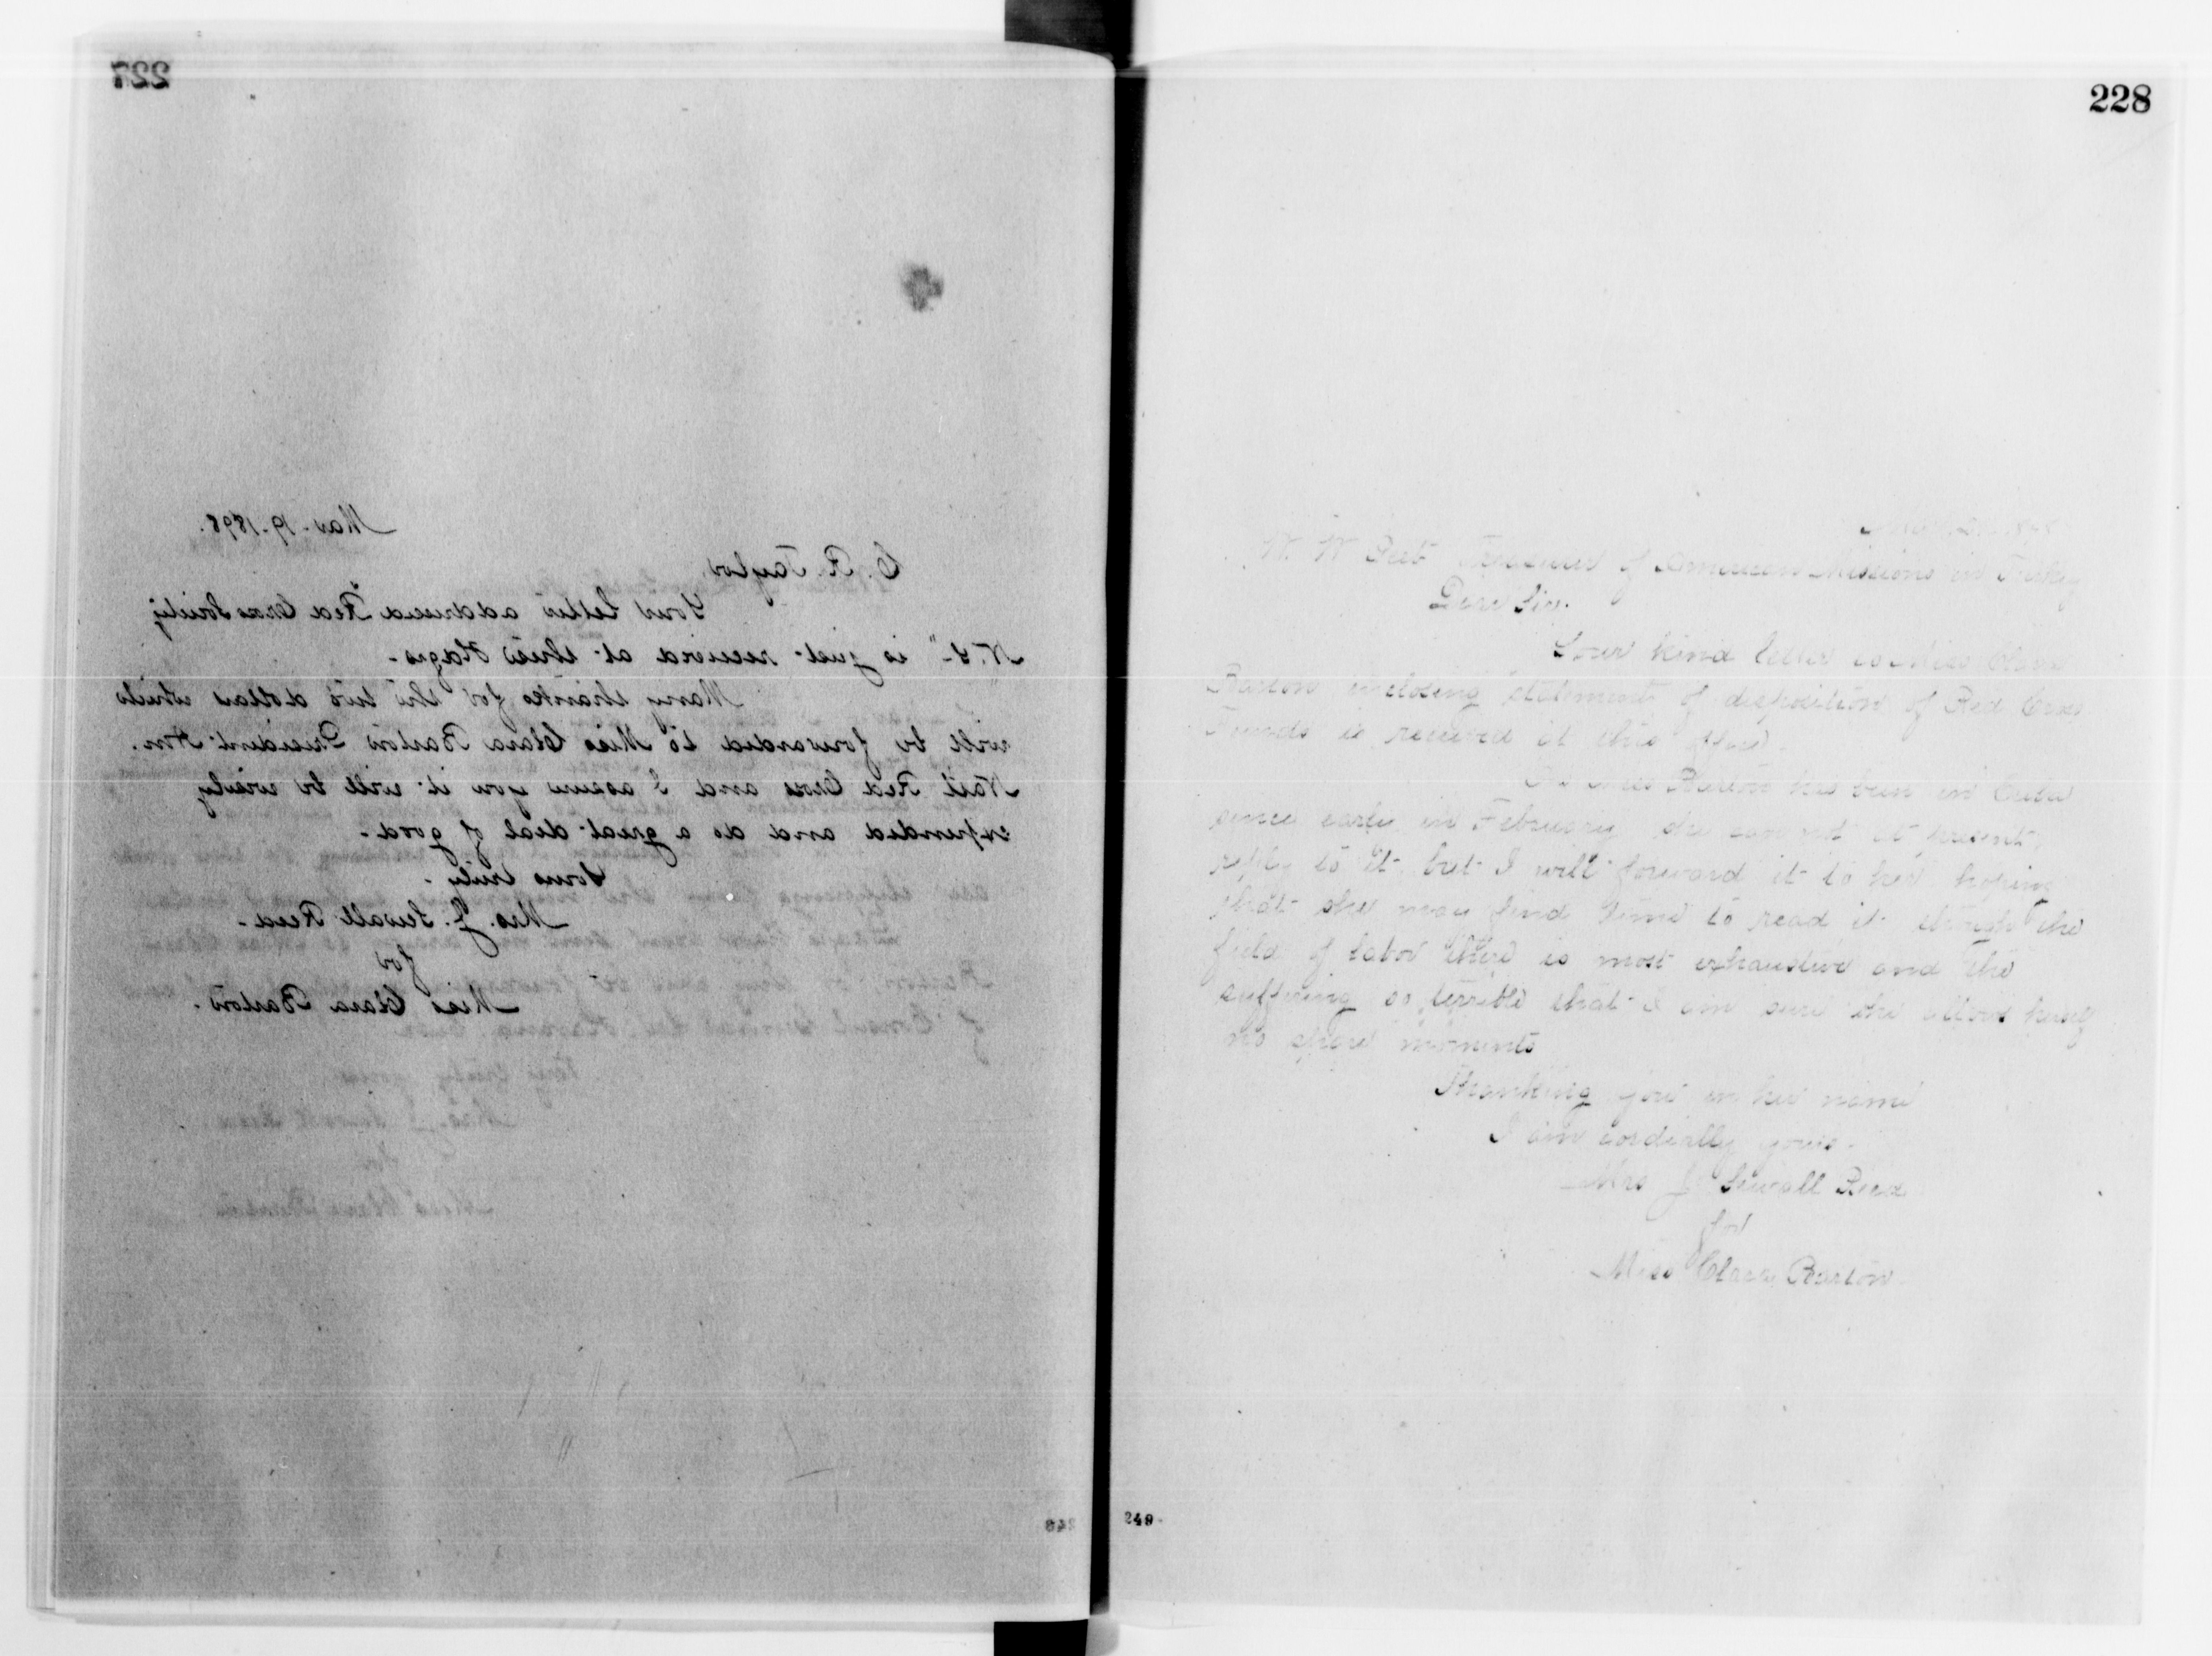 227
Mar. 19. 1898.
C. R. Taylor,
Your letter addressed Red Cross Society
N.Y." is just received at these Hdqrs.
Many thanks for the two dollars which
will be forwarded to Miss Clara Barton President Am.
Nat'l Red Cross and I assure you it will be wisely
expended and do a great deal of good.
Yours truly.
Mrs. J. Sewall Reed.
for
Miss Clara Barton.
248
228
W. W. Peet Treasurer of American Missions in Turkey
Dear Sir.
Your kind letter to Miss Clara
Barton inclosing statement of disposition of Red Cross
Funds is received at this office.
As Miss Barton has been in Cuba
since early in February she can not at present
reply to it but I will forward it to her hoping
that she may find time to read it though the
field of labor there is most exhaustive and the
suffering so terrible that I am sure she allows herself
no spare moments
Thanking you in her name
I am cordially yours.
Mrs J Sewall Reed
for
Miss Clara Barton.
249